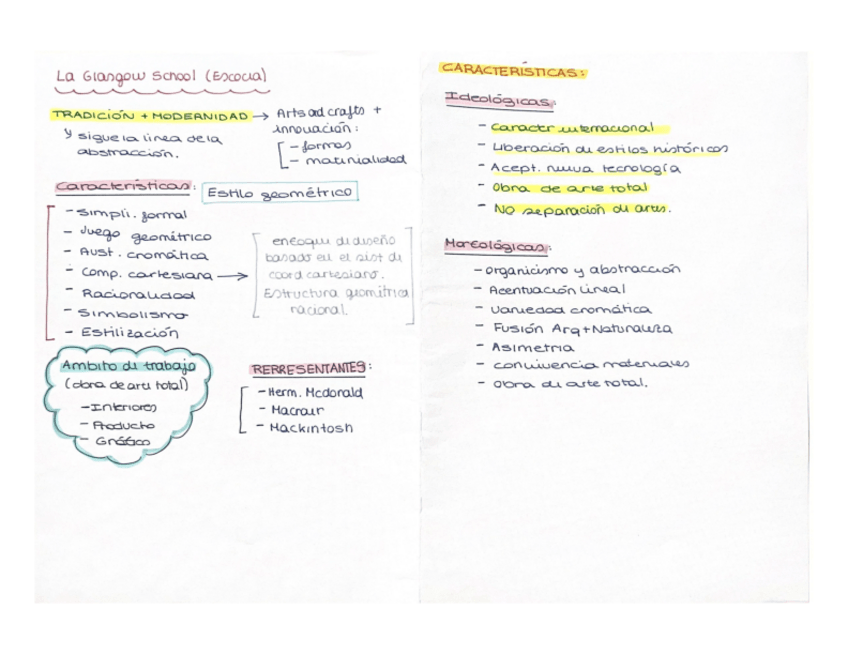 La Glasgow School (Escocia)
TRADICIÓN + MODERNIDAD → Arts and crafts +
innovación:
- formas
- materialidad
y sigue la línea de la
abstracción.
Características: Estilo geométrico
- Simpli. formal
- Juego geométrico
- Aust. cromática
- Comp. cartesiana →
- Racionalidad
- Simbolismo
- Estilización
enfoque di diseño
basado en el sist de
coord cartesiano.
Estructura geométrica
racional.
Ambito di trabajo
(obra de arti total)
- Interiores
- Producto
- Gráfico
RERRESENTANTES:
- Herm. Mcdonald
- Macnair
- Mackintosh
CARACTERÍSTICAS:
Ideológicas:
- Caracter internacional
- Liberación de estilos históricos
- Acept. nueva tecnología
- Obra de arte total
- NO separación di artes.
Morfológicas:
- organicismo y abstracción
- Acentuación Lineal
- Variedad cromática
- Fusión Arq + Naturaleza
- Asimetria
- convivencia materiales
- Obra di arte total.